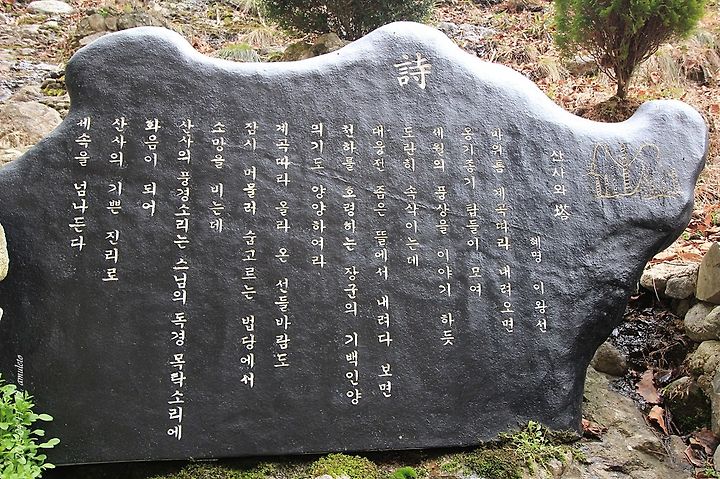 詩
산사와 塔
혜명 이왕선
바위틈 계곡따라 내려오면
옹기종기 탑들이 모여
세월의 풍상을 이야기 하듯
도란히 속삭이는데
대웅전 좁은 뜰에서 내려다 보면
천하를 호령하는 장군의 기백인양
의기도 양양하여라
계곡따라 올라 온 선들바람도
잠시 머물러 숨고르는 법당에서
소망을 비는데
산사의 풍경소리는 스님의 독경 목탁소리에
화음이 되어
산사의 기쁜 진리로
세속을 넘나든다
amuloto